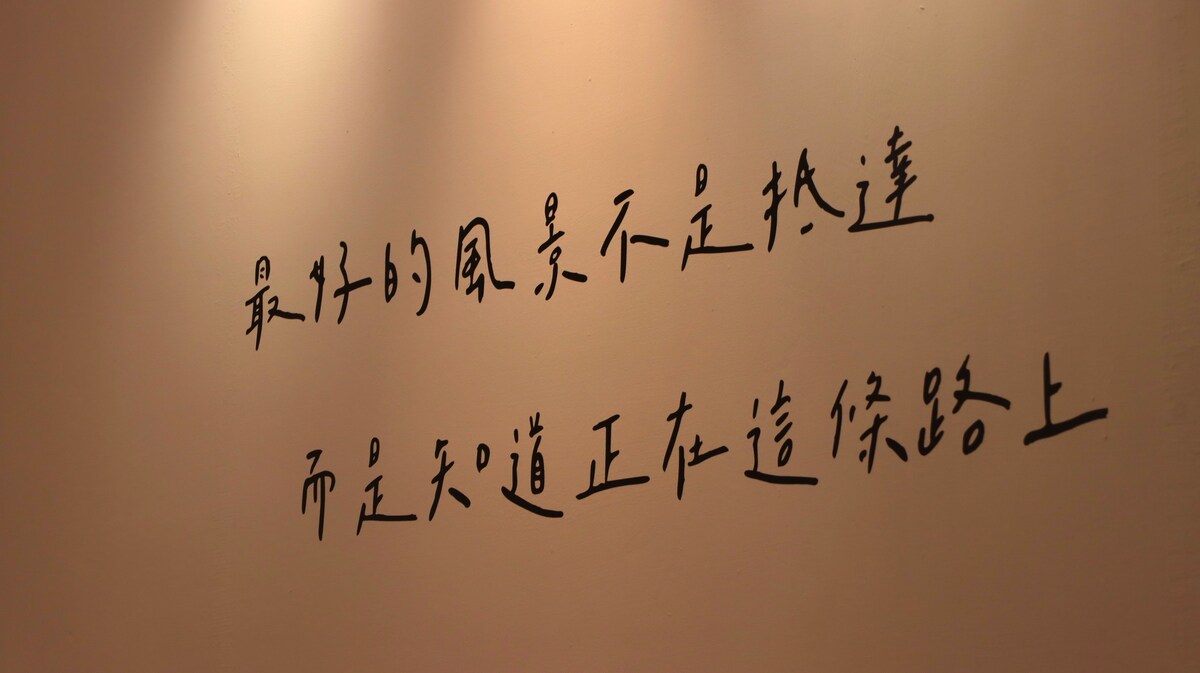 最好的風景不是抵達
而是知道正在這條路上